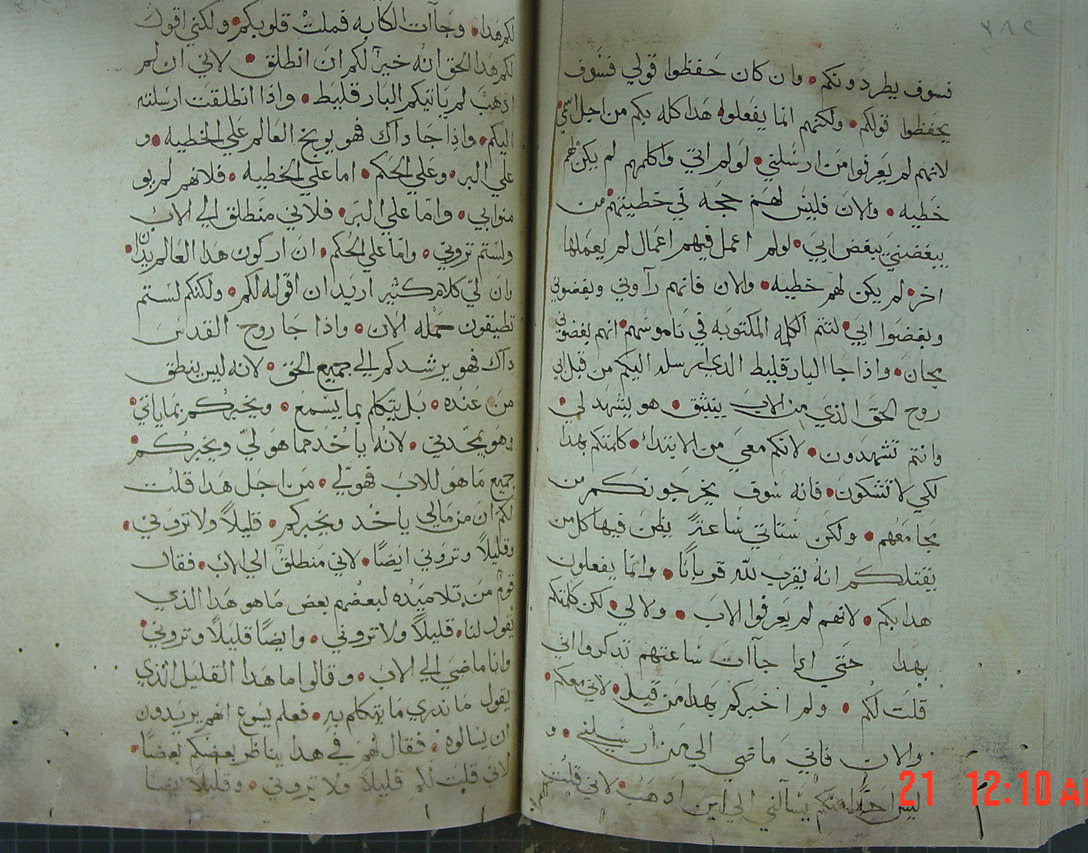 ٣٨٢
فسوف يطردونكم • وان كان حفظوا قولي فسوف
يحفظوا قولكم • ولكنهم انما يفعلوه هدا كله بكم من اجل اسمي
لانهم لم يعرفوا من ارسلني • لو لم اتي واكلمهم لم يكن لهم
خطيه • والان فليس لهم حجه في خطيتهم من
يبغضني يبغض ابي • لو لم اعمل فيهم اعمال لم يعملها
اخر لم يكن لهم خطيه • والان فانهم راوني وبغضوني
وبغضوا ابي لتتم الكلمه المكتوبه في ناموسهم انهم بغضوني
مجان • واذا جا البارقليط الدي ارسله اليكم من قبل ابي
روح الحق الذي من الاب ينبثق • هو يشهد لي •
وانتم تشهدون • لانكم معي من الابتدا • كلمتكم بهدا
لكي لا تشكون • فانه سوف يخرجونكم من
مجامعهم • ولكن ستاتي ساعة يظن فيها كل من
يقتلكم انه يقرب لله قربانا • وانما يفعلون
هدا بكم • لانهم لم يعرفوا الاب • ولا لي • لكن كلمتكم
بهدا حتي ادا جاات ساعتهم تدكروا اني
قلت لكم • ولم اخبركم بهدا من قبل • لاني معكم •
والان فاني ماضي الي من ارسلني • و
ليس احدا منكم يسالني الي اين ادهب • لاني قلت
لكم هدا • وجاات الكابه فملت قلوبكم • ولكني اقول
لكم هدا الحق انه خيرا لكم ان انطلق • لاني ان لم
ادهب لم ياتيكم البارقليط • وادا انطلقت ارسلته
اليكم • وادا جا داك فهو يوبخ العالم علي الخطيه • و
علي البر • وعلي الحكم • اما علي الخطيه • فلانهم لم يو
منوا بي • واما علي البر • فلاني منطلق الي الاب
ولستم تروني • واما علي الحكم • ان اركون هدا العالم يدان
بان لي كلام كثير اريد ان اقوله لكم • ولكنكم لستم
تطيقون حمله الان • وادا جا روح القدس
داك فهو يرشدكم الي جميع الحق • لانه ليس ينطق
من عنده • بل يتكلم بما يسمع • ويخبركم بما ياتي •
وهو يمجدني • لانه ياخد مما هو لي ويخبركم •
جميع ما هو للاب فهو لي • من اجل هدا قلت
لكم ان من مالي ياخد ويخبركم • قليلاً ولا تروني •
وقليلاً وتروني ايضًا • لاني منطلق الي الاب • فقال
قوم من تلاميده لبعضهم بعض ما هو هدا الدي
يقول لنا • قليلاً ولا تروني • وايضًا قليلاً وتروني •
وانا ماضي الي الاب • وقالوا ما هدا القليل الذي
يقول ما ندري ما يتكلم به • فعلم يسوع انهم يريدون
ان يسالوه • فقال لهم في هدا يناظر بعضكم بعضًا •
لاني قلت لكم قليلاً ولا تروني • وقليلاً ايضا
21 12:10 A